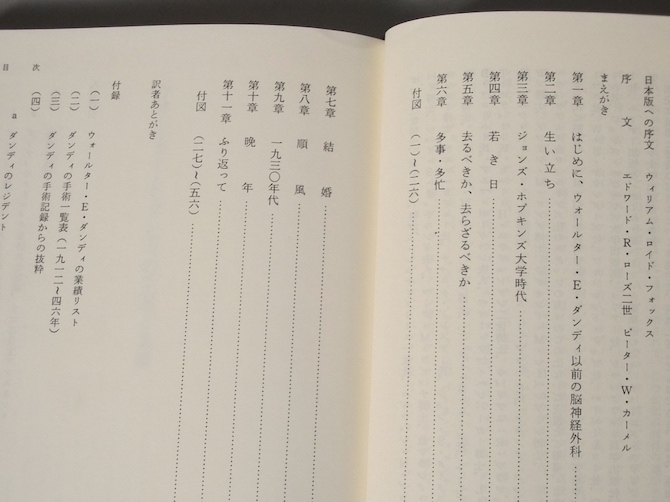 日本版への序文 ウィリアム・ロイド・フォックス
序文 エドワード・R・ローズ二世 ピーター・W・カーメル
まえがき
第一章 はじめに、ウォールター・E・ダンディ以前の脳神経外科
第二章 生い立ち
第三章 ジョンズ・ホプキンズ大学時代
第四章 若き日
第五章 去るべきか、去らざるべきか
第六章 多事・多忙
付図 (一)〜(二六)
第七章 結婚
第八章 順風
第九章 一九三〇年代
第十章 晩年
第十一章 ふり返って
付図 (二七)〜(五六)
訳者あとがき
付録
(一) ウォールター・E・ダンディの業績リスト
(二) ダンディの手術一覧表(一九一二〜四六年)
(三) ダンディの手術記録からの抜粋
(四)
a ダンディのレジデント
目次